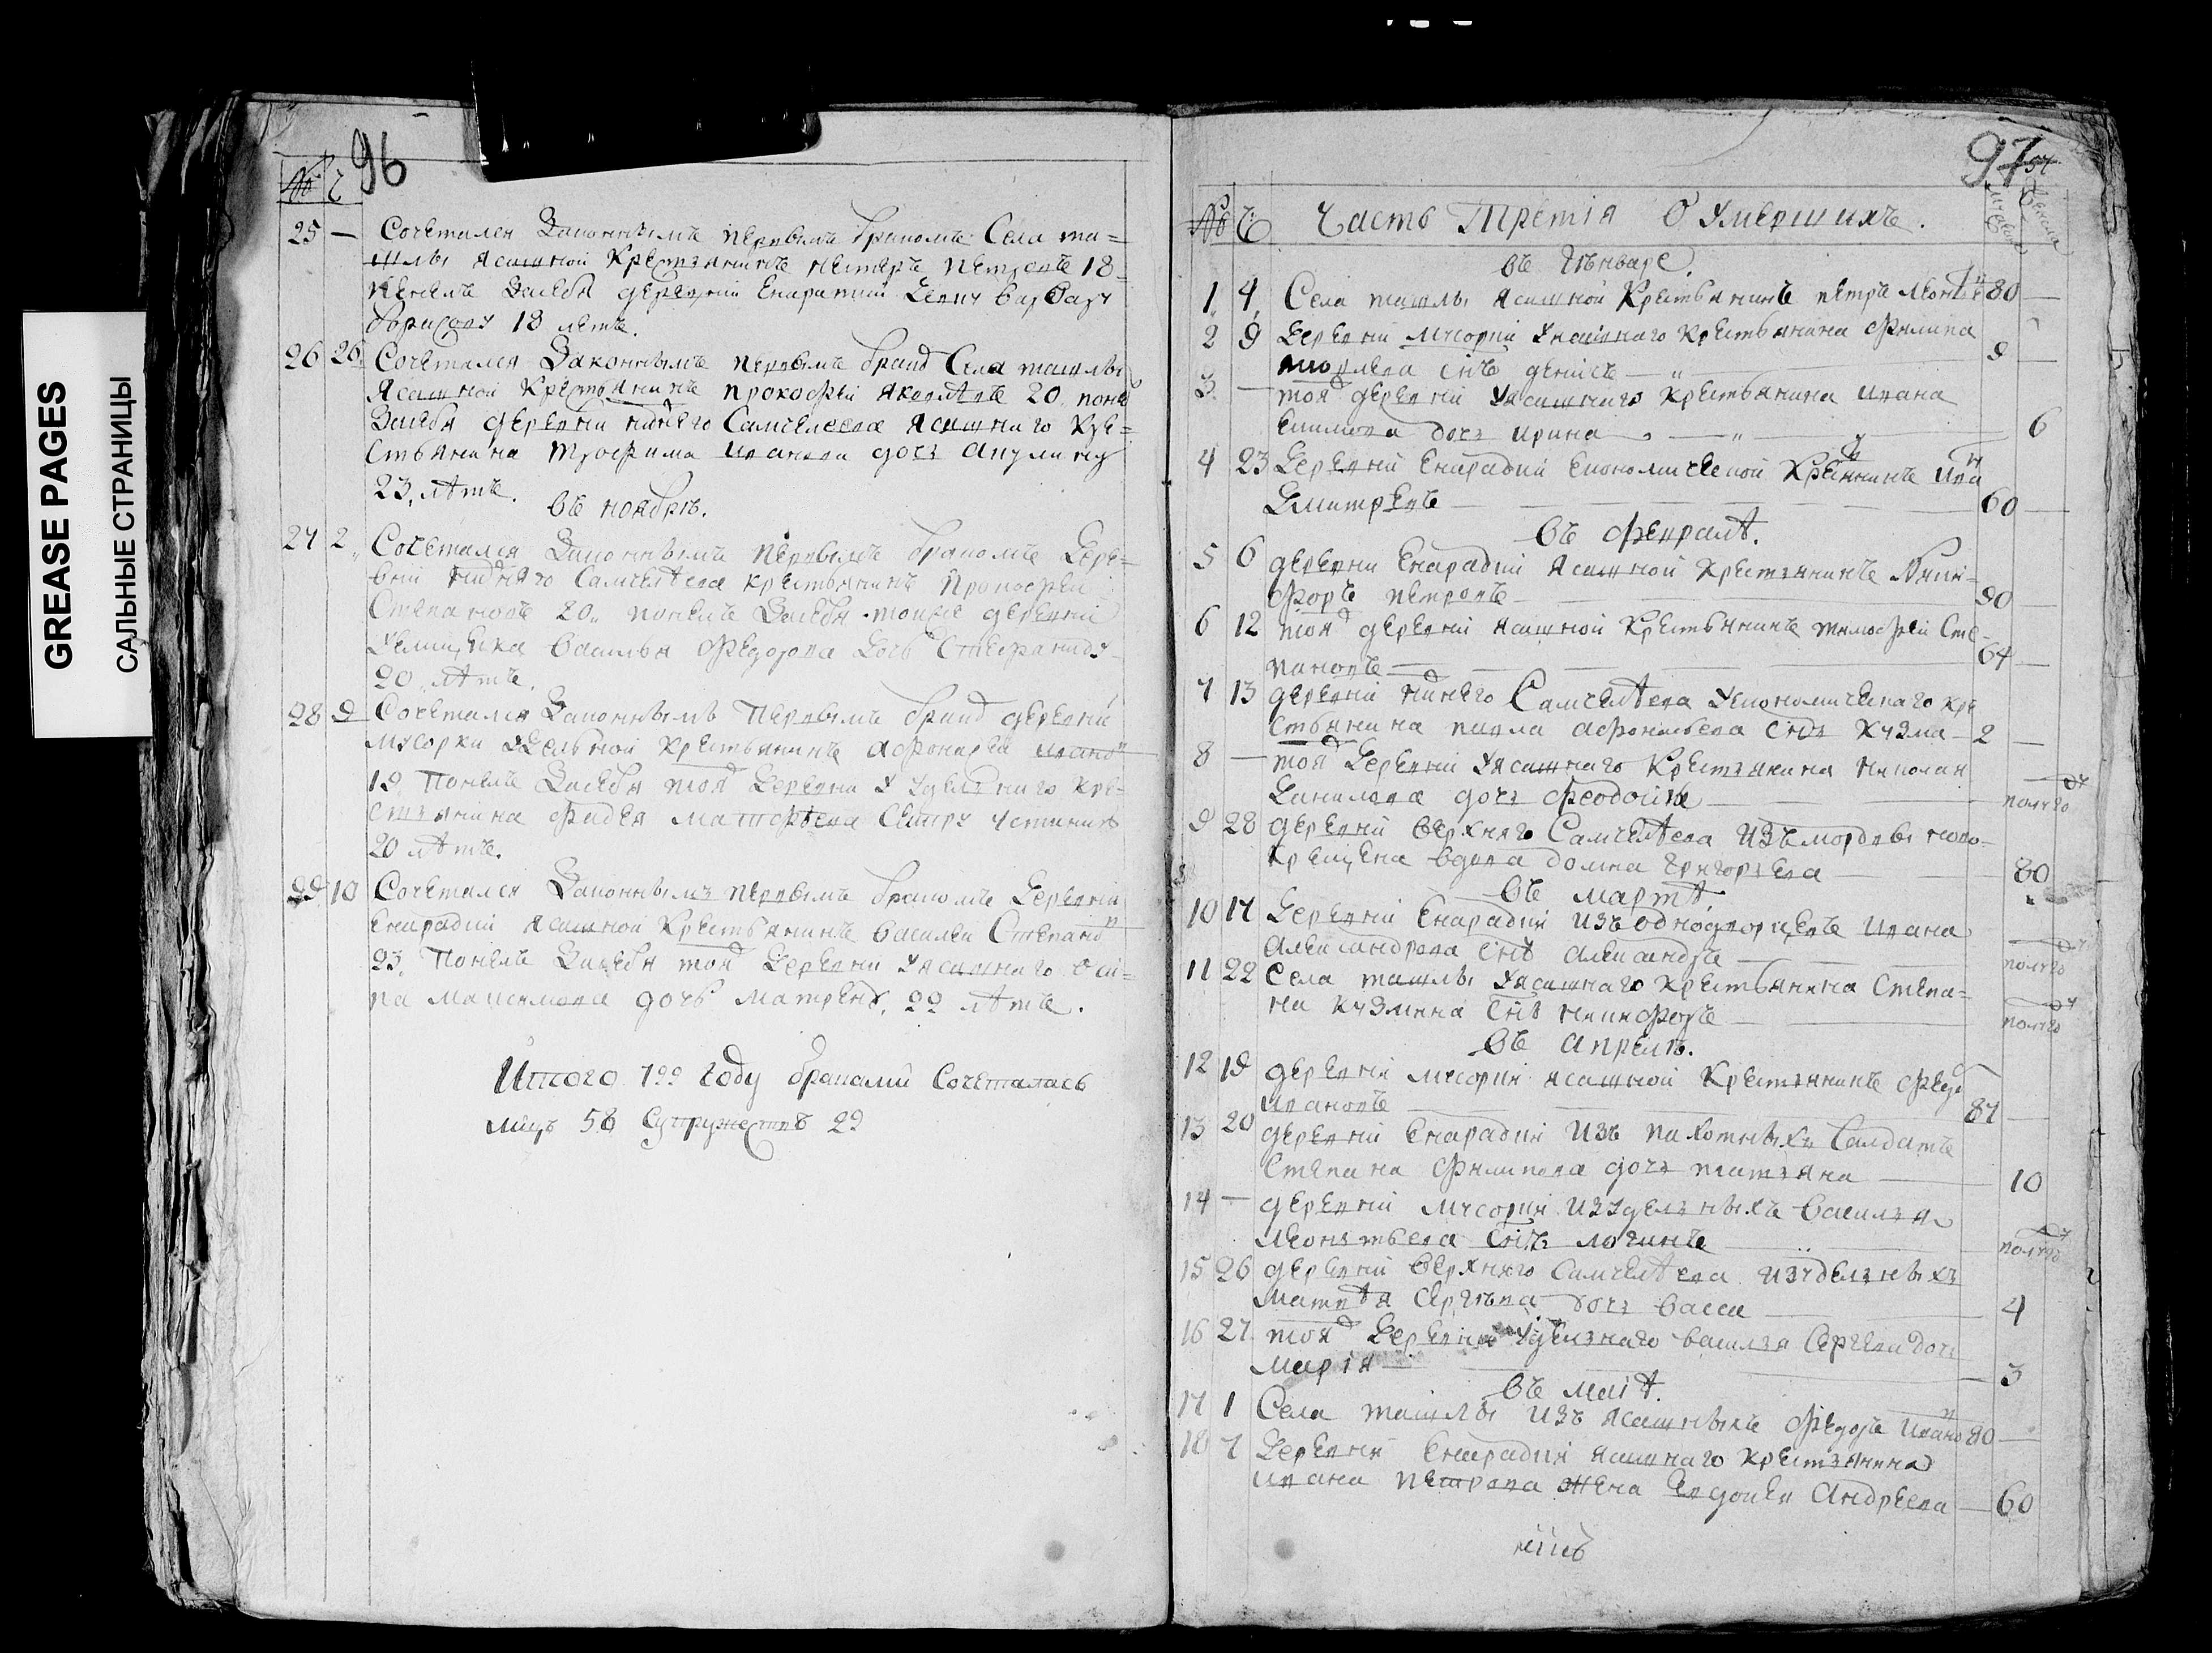 GREASE PAGES
САЛЬНЫЕ СТРАНИЦЫ
96
№ Ч
25 — Сочетался Законнымъ первымъ бракомъ Села та=
шлы ясашной Крестьянинъ Петръ Петровъ 18
понялъ Засебя деревни Екаратки Девку Варвару
Борисову 18 летъ.
26 26 Сочетался Законнымъ первымъ брако Села ташлы
Ясашной Крестьянинъ прокофей яковлѣвъ 20 понялъ
Засебя деревни нижнего Санчелеева Ясашнаго Кре=
стьянина Трофима иванова дочь акулину
23, лѣтъ.
Въ ноябрѣ.
27 2 Сочетался Законнымъ первымъ бракомъ Дере=
вни нижняго Санчелѣева крестьянинъ Прокофей
Степановъ 20,, понялъ Засебя тоиже деревни
Васильа Федорова дочь Стефаниду
20 лѣтъ.
28 9 Сочетался Законнымъ Первымъ брако деревни
мусорки Удельной крестьянинъ Афонасей ивано
19, Понялъ Засебя тоя Деревни Удельнаго Кре=
стьянина Фадея Матфѣева Сестру устинию
20 лѣтъ.
29 10 Сочетался Законнымъ первымъ бракомъ Деревни
Екарадки Ясашной Крестьянинъ Василеи Степано
23, Понялъ Засебя тоя Деревни Уясашнаго Оси=
па Максимова дочь Матрену, 22 лѣтъ.
Итого 799 году браками Сочеталась
лицъ 58 Супружествъ 29
97
№ Ч Часть Третія О Умершихъ.
Въ Генваре.
1, 4, Села ташлы Ясашной Крестьянинъ петръ Леонть 80 —
2 9 Деревни Мусорки Уясашнаго Крестьянина Филипа
снъ денисъ — 9 —
3. — тоя деревни Уясашнаго Крестьянина ивана
Екимова дочь ирина — 6
4 23 Деревни Екарадки Економической Крестьянинъ Ива
Дмитревъ — 60 —
Въ Февралѣ.
5 6 деревни Екарадки Ясашной Крестьянинъ Ники=
форъ петровъ — 90 —
6 12 тоя деревни ясашной Крестьянинъ тимофей Сте=
пановъ — 64 —
7 13 деревни нижнего Санчелѣева Уекономическаго кре
стьянина павла афонасьева снъ Кузма — 2 —
8 — тоя Деревни Уясашнаго Крестьянина николая
Данилова дочь Феодосия — полуго
9 28 деревни верхняго Санчелѣева Изъ мордвы ново=
крещена вдова домна григорьева — 80
Въ мартѣ.
10 17 Деревни Екарадки изъ однодворцевъ Ивана
Александрова снъ Александръ — полуго
11 22 Села ташлы Уясашнаго крестьянина Степа=
на Кузмина снъ никифоръ — полуго
Въ Апрелѣ.
12 19 деревни мусорки ясашной Крестьянинъ Федо
Ивановъ — 87 —
13 20 деревни Екарадки Изъ пахотныхъ Салдатъ
Степана Филипова дочь татьяна — 10
14 — деревни мусорки Изудельныхъ Василья
Леонтьева снъ логинъ — полуго
15 26 деревни верхняго Санчелѣева изудельныхъ
Матвѣя Сергѣева дочь васса — 4
16 27 тоя Деревни Удельнаго василья Сергеева дочь
Мария — 3
Въ маіѣ.
17 1 Села ташлы Изъ ясашныхъ Федоръ Ивано 80 —
18 7 Деревни Екарадки ясашнаго крестьянина
ивана петрова жена Евдокея Андреева — 60